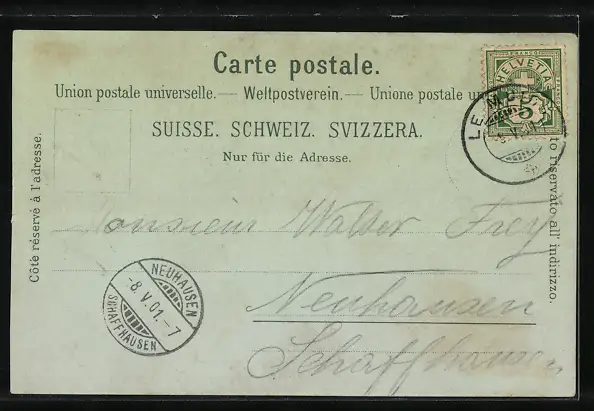 Carte postale.
Union postale universelle. — Weltpostverein. — Unione postale
SUISSE. SCHWEIZ. SVIZZERA.
Nur für die Adresse.
Côté réservé à l'adresse.
riservato all' indirizzo.
FRANCO
HELVETIA
5
LE
V
Monsieur Walser Frey
Neuhausen
Schaffhausen
NEUHAUSEN
-8.V.01.-7
SCHAFFHAUSEN